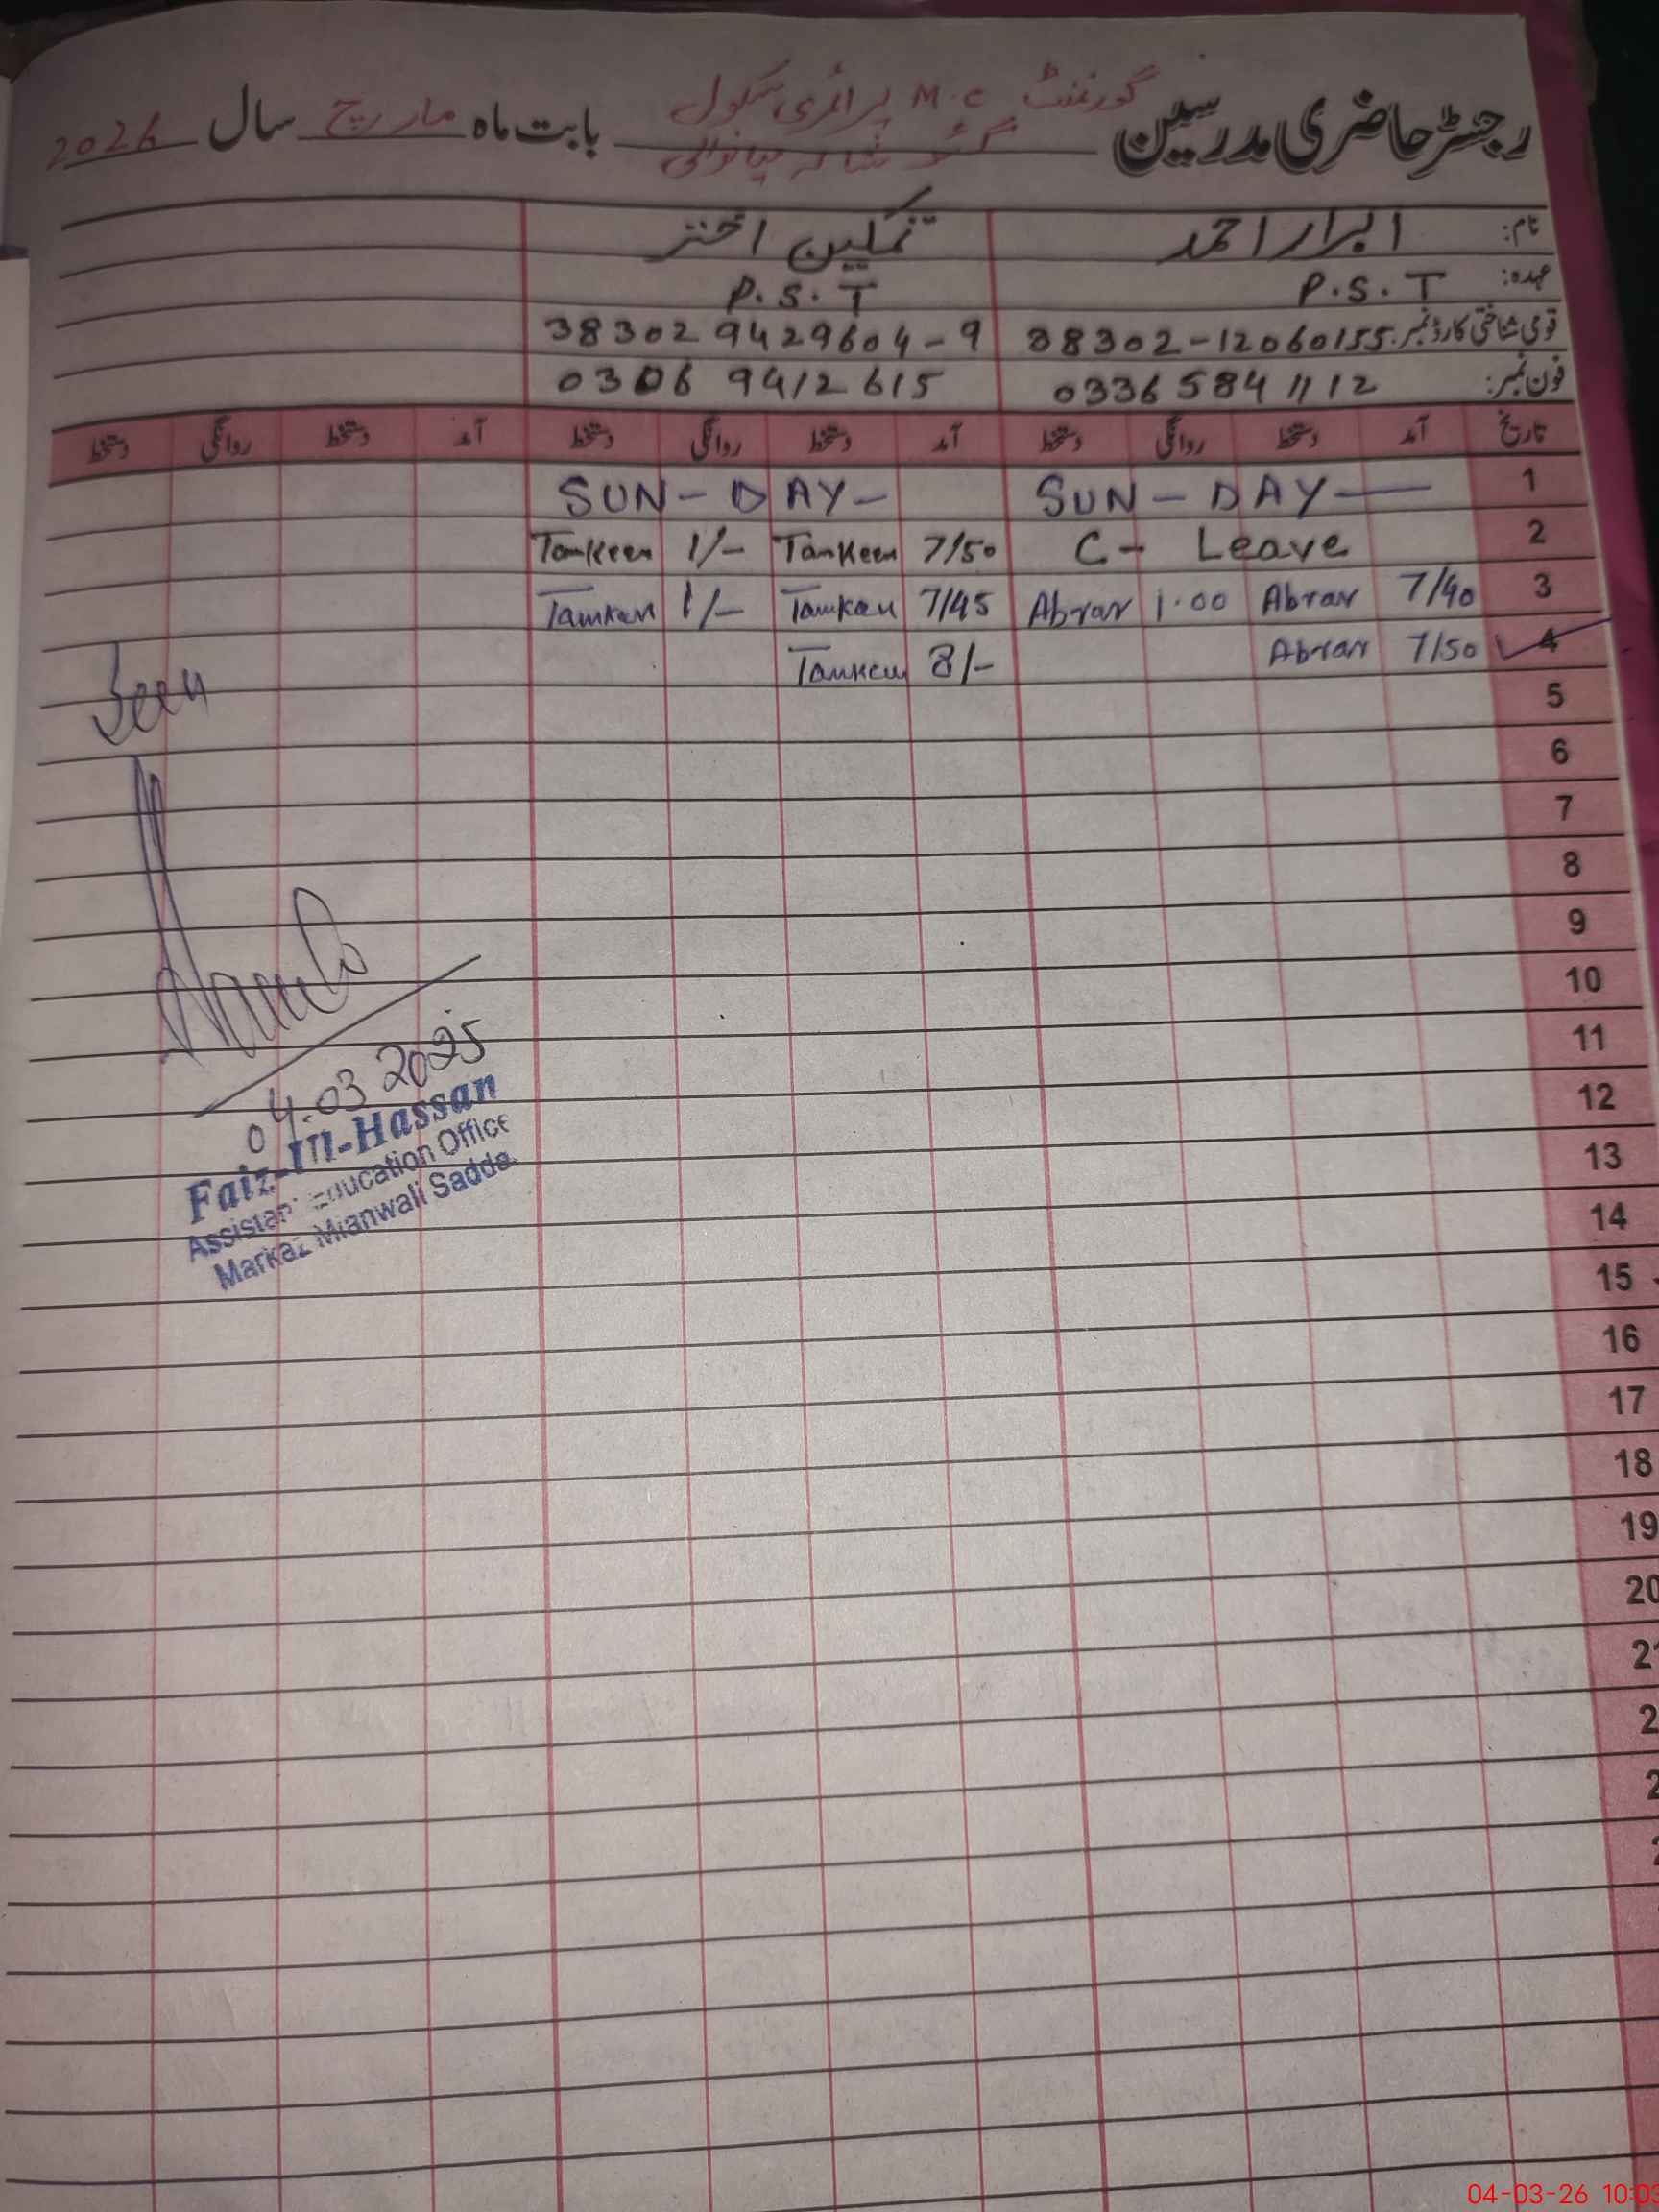 رجسٹر حاضری مدرسین گورنمنٹ M.C پرائمری سکول بابت ماہ مارچ سال 2026
میانوالی
نام: ابرار احمد تمکین اختر
عہدہ: P.S.T P.S.T
قومی شناختی کارڈ نمبر: 38302-12060155 38302 9429604-9
فون نمبر: 0336 584 1112 0306 9412615
تاریخ آمد دستخط روانگی دستخط آمد دستخط روانگی دستخط آمد دستخط روانگی دستخط
1 SUN-DAY— SUN-DAY-
2 C- Leave 7/50 Tamkeen 1/- Tamkeen
3 7/40 Abrar 1.00 Abrar 7/45 Tamkeen 1/- Tamkeen
4 7/50 Abrar 8/- Tamkeen
Seen
5
6
7
8
9
10
11
12
13
14
15
16
17
18
19
20
04.03.2025
Faiz-Ul-Hassan
Assistant Education Office
Markaz Mianwali Sadda
04-03-26 10:03